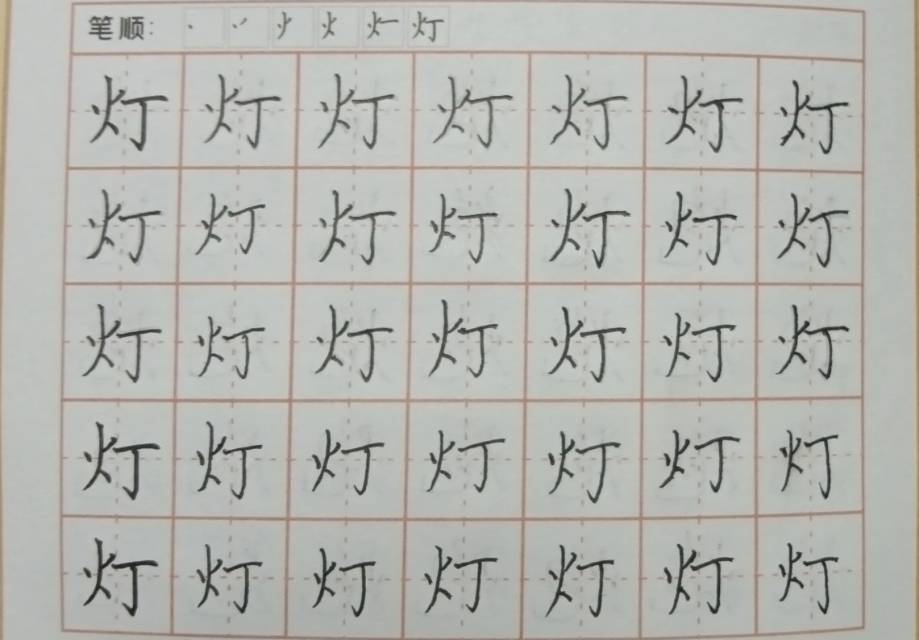 笔顺: 丶 丷 火 灯
灯 灯 灯 灯 灯 灯 灯
灯 灯 灯 灯 灯 灯 灯
灯 灯 灯 灯 灯 灯 灯
灯 灯 灯 灯 灯 灯 灯
灯 灯 灯 灯 灯 灯 灯